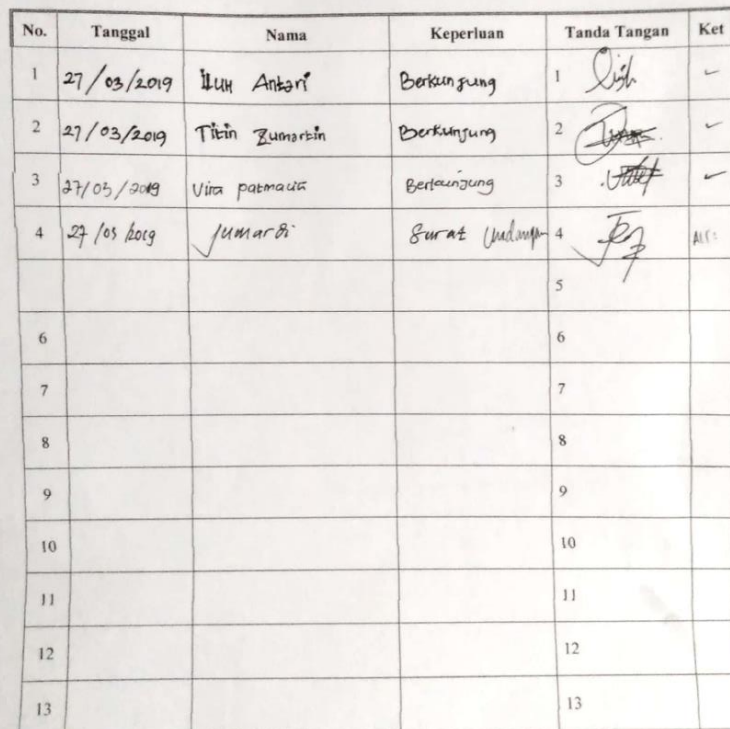 No. Tanggal Nama Keperluan Tanda Tangan Ket
1 27/03/2019 Iluh Antari Berkunjung 1
2 27/03/2019 Titin Zumartin Berkunjung 2
3 27/03/2019 Vira patmawati Berkunjung 3
4 27/03/2019 Jumardi Surat Undangan 4
5
6 6
7 7
8 8
9 9
10 10
11 11
12 12
13 13